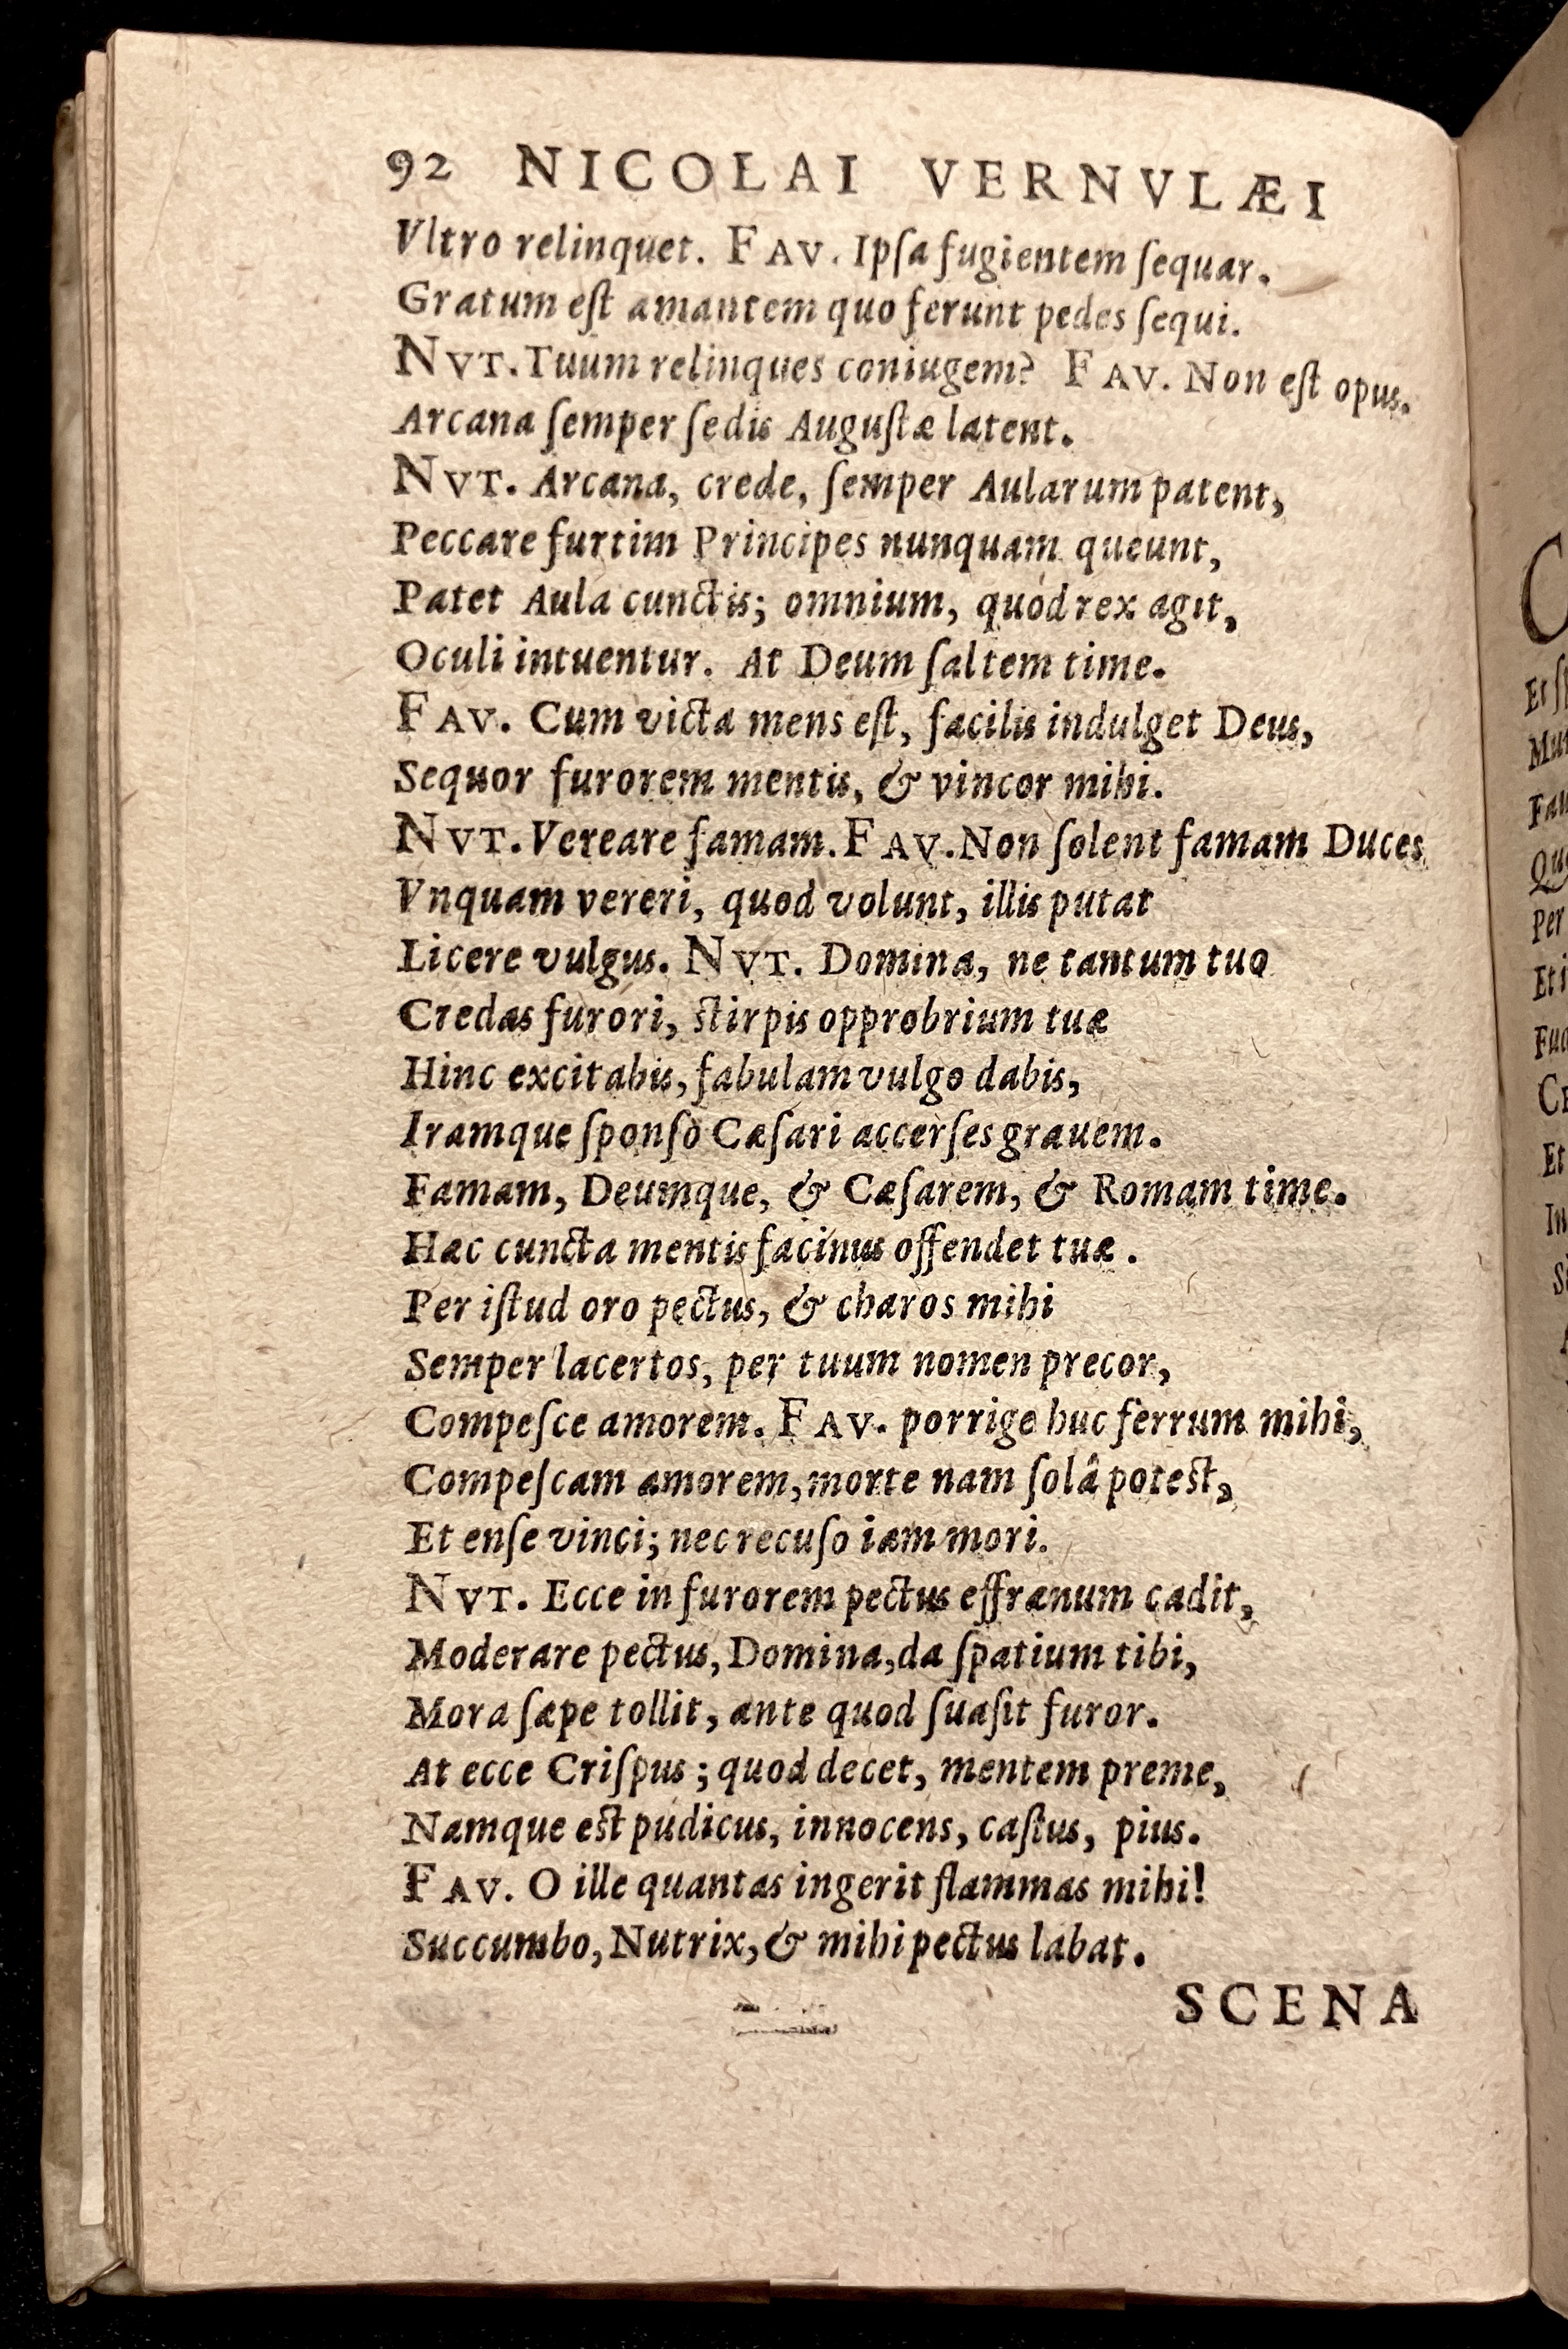 92 NICOLAI VERNVLÆI
Vltro relinquet. FAV. Ipſa fugientem ſequar.
Gratum eſt amantem quo ferunt pedes ſequi.
NVT. Tuum relinques coniugem? FAV. Non eſt opus.
Arcana ſemper ſedis Auguſtæ latent.
NVT. Arcana, crede, ſemper Aularum patent,
Peccare furtim Principes nunquam queunt,
Patet Aula cunctis; omnium, quod rex agit,
Oculi intuentur. At Deum ſaltem time.
FAV. Cum victa mens eſt, facilis indulget Deus,
Sequor furorem mentis, & vincor mihi.
NVT. Vereare famam. FAV. Non ſolent famam Duces
Vnquam vereri, quod volunt, illis putat
Licere vulgus. NVT. Domina, ne tantum tuo
Credas furori, stirpis opprobrium tuæ
Hinc excitabis, fabulam vulgo dabis,
Iramque ſponſo Cæſari accerſes grauem.
Famam, Deumque, & Cæſarem, & Romam time.
Hæc cuncta mentis facinus offendet tuæ.
Per iſtud oro pectus, & charos mihi
Semper lacertos, per tuum nomen precor,
Compeſce amorem. FAV. porrige huc ferrum mihi,
Compeſcam amorem, morte nam ſolâ potest,
Et enſe vinci; nec recuſo iam mori.
NVT. Ecce in furorem pectus effrænum cadit,
Moderare pectus, Domina, da ſpatium tibi,
Mora ſæpe tollit, ante quod ſuaſit furor.
At ecce Criſpus; quod decet, mentem preme,
Namque est pudicus, innocens, caſtus, pius.
FAV. O ille quantas ingerit flammas mihi!
Succumbo, Nutrix, & mihi pectus labat.
SCENA